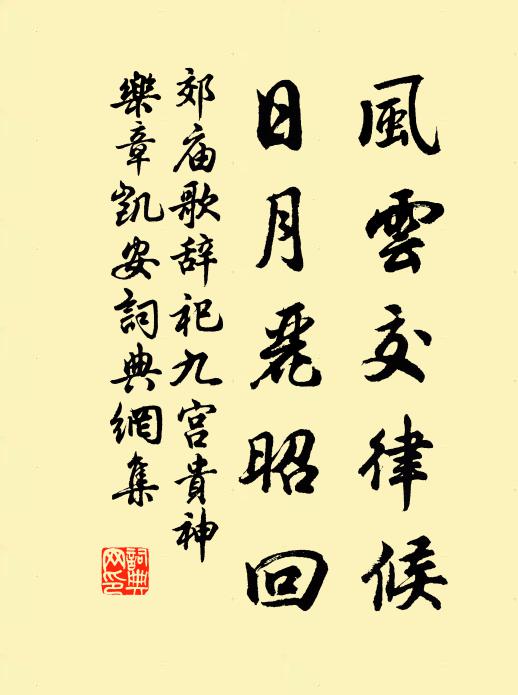 風雲交律候
日月麗昭回
郊庙歌辞祀九宫貴神
樂章凱安詞典網集
詞典
网印